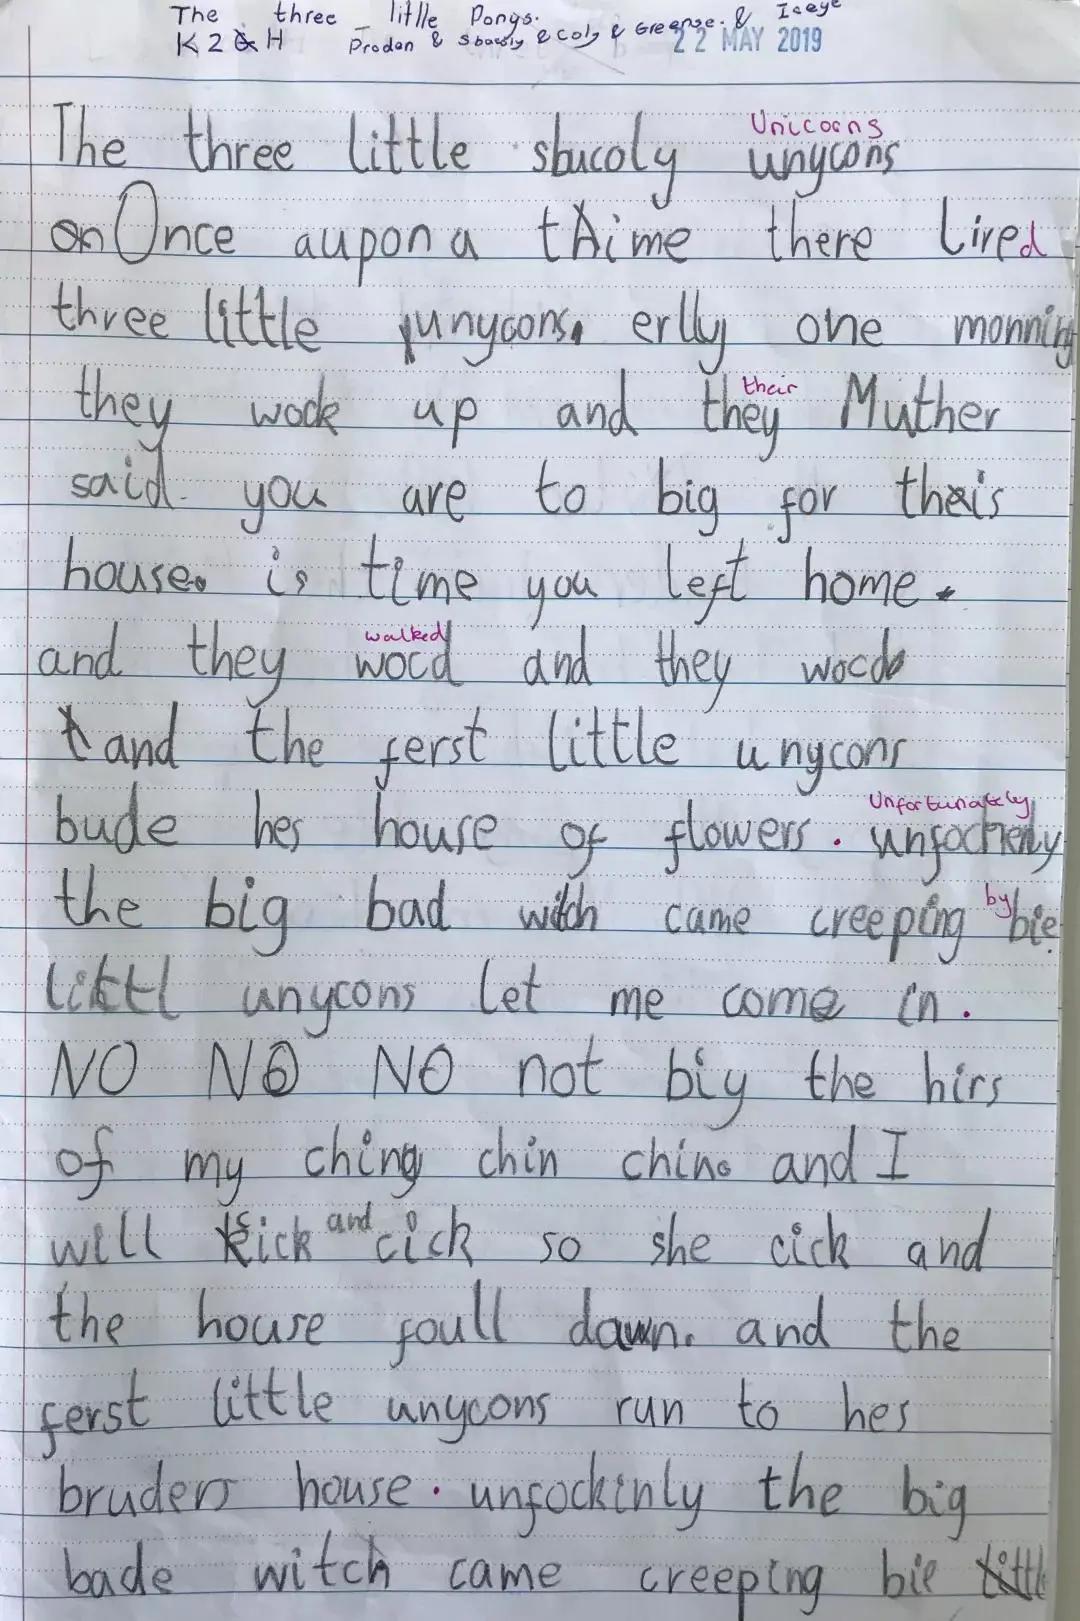 The three little Pongs.
K 2 & H Prodan & sbucoly & Coly & Greense. & Iseye
22 MAY 2019
The three little sbucoly unycons
Unicoons
on Once aupon a time there lired
three little unycons. erlly one monning
they wock up and they Muther
their
said. you are to big for theis
house. is time you left home.
and they wocd and they wocd
walked
and the ferst little unycons
bude hes house of flowers. unfochenly
Unfortunately
the big bad witch came creeping bie
by
littl unycons let me come in.
NO NO NO not biy the hirs
of my ching chin chin. and I
will kick and cick so she cick and
the house foull dawn. and the
ferst little unycons run to hes
bruders house. unfockinly the big
bade witch came creeping bie